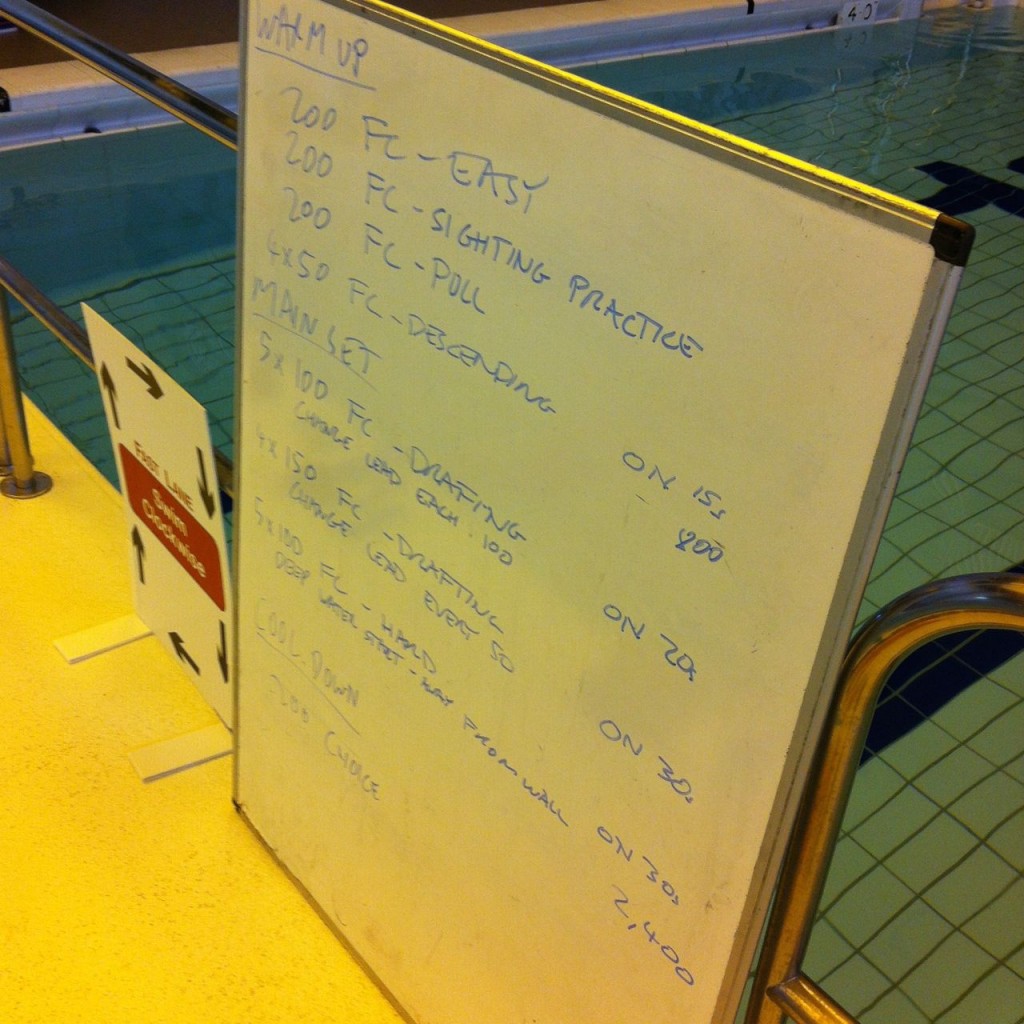 WARM UP
200 FC - EASY
200 FC - SIGHTING PRACTICE
200 FC - PULL
4x50 FC - DESCENDING ON 15s
800
MAIN SET
5x100 FC - DRAFTING ON 20s
CHANGE LEAD EACH 100
4x150 FC - DRAFTING ON 30s
CHANGE LEAD EVERY 50
5x100 FC - HARD ON 30s
DEEP WATER START - AWAY FROM WALL
COOL DOWN
200 CHOICE
2,400
FAST LANE
Swim
Clockwise